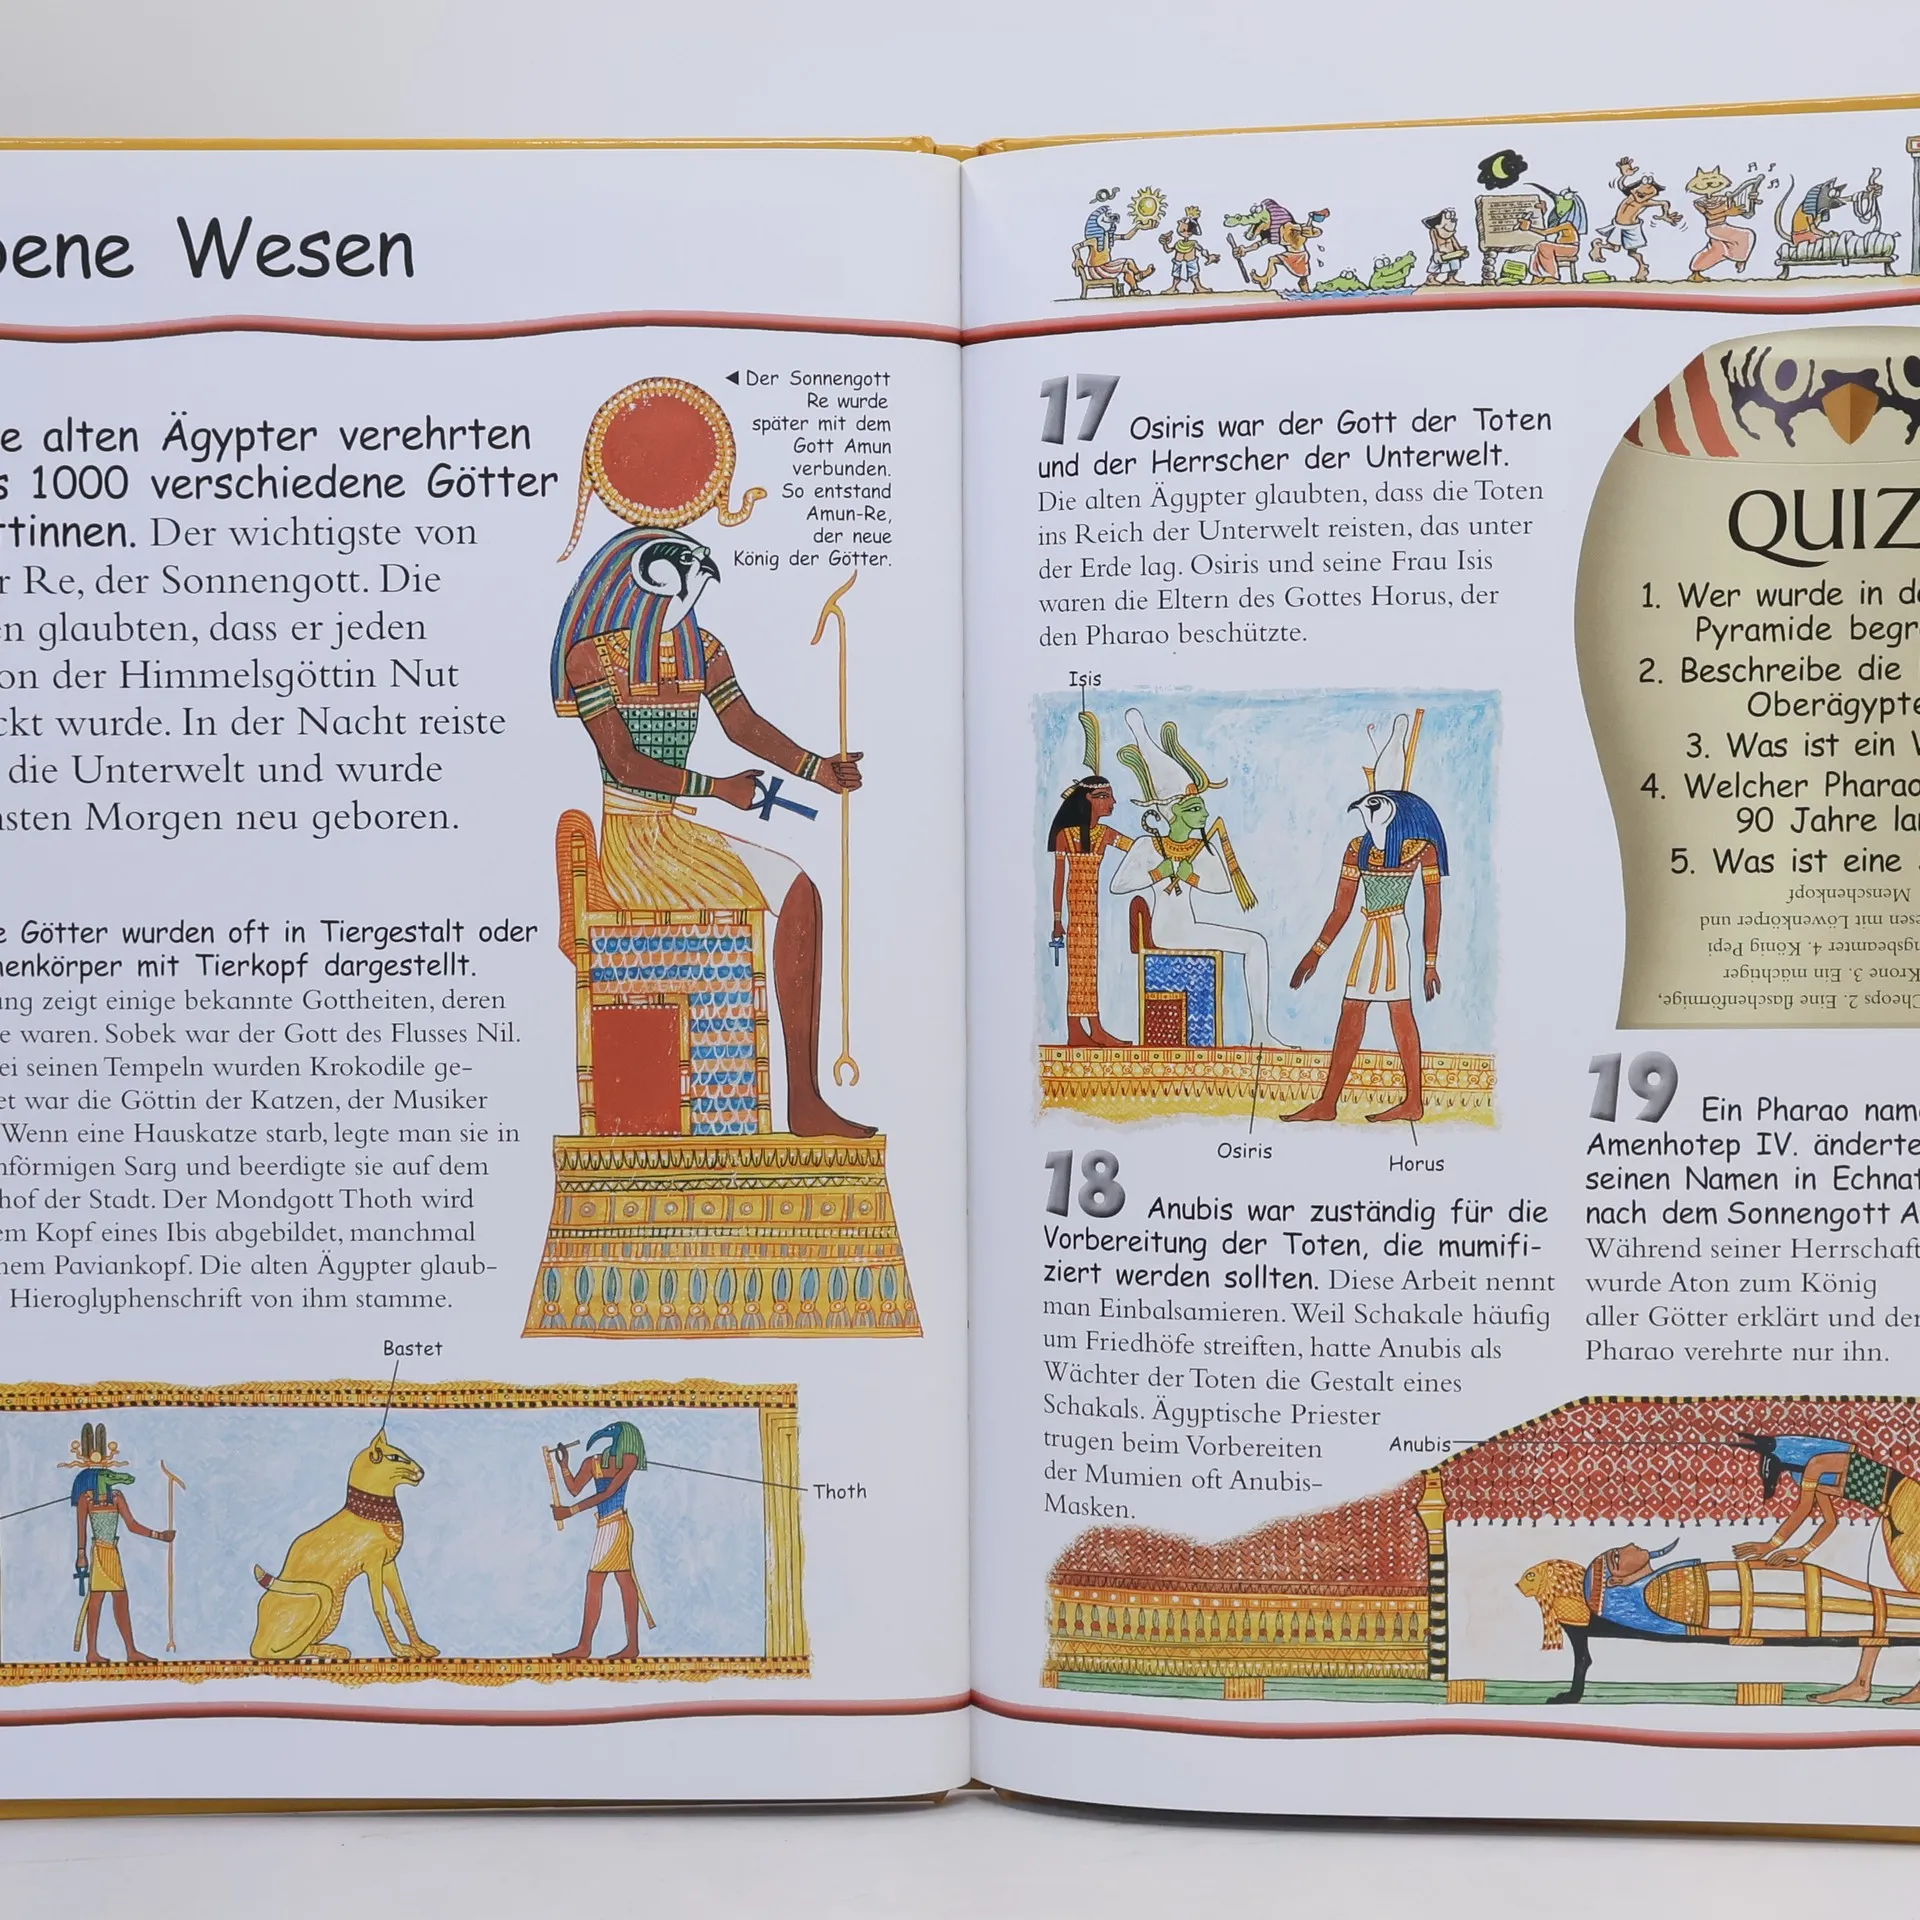 Wesen
alten Ägypter verehrten
1000 verschiedene Götter
Der wichtigste von
Re, der Sonnengott. Die
glaubten, dass er jeden
der Himmelsgöttin Nut
wurde. In der Nacht reiste
die Unterwelt und wurde
Morgen neu geboren.
◄ Der Sonnengott
Re wurde
später mit dem
Gott Amun
verbunden.
So entstand
Amun-Re,
der neue
König der Götter.
Götter wurden oft in Tiergestalt oder
mit Tierkopf dargestellt.
zeigt einige bekannte Gottheiten, deren
waren. Sobek war der Gott des Flusses Nil.
seinen Tempeln wurden Krokodile ge-
war die Göttin der Katzen, der Musiker
Wenn eine Hauskatze starb, legte man sie in
Sarg und beerdigte sie auf dem
der Stadt. Der Mondgott Thoth wird
Kopf eines Ibis abgebildet, manchmal
Paviankopf. Die alten Ägypter glaub-
Hieroglyphenschrift von ihm stamme.
Bastet
Thoth
17 Osiris war der Gott der Toten
und der Herrscher der Unterwelt.
Die alten Ägypter glaubten, dass die Toten
ins Reich der Unterwelt reisten, das unter
der Erde lag. Osiris und seine Frau Isis
waren die Eltern des Gottes Horus, der
den Pharao beschützte.
Isis
Osiris
Horus
18 Anubis war zuständig für die
Vorbereitung der Toten, die mumifi-
ziert werden sollten. Diese Arbeit nennt
man Einbalsamieren. Weil Schakale häufig
um Friedhöfe streiften, hatte Anubis als
Wächter der Toten die Gestalt eines
Schakals. Ägyptische Priester
trugen beim Vorbereiten
der Mumien oft Anubis-
Masken.
Anubis
QUIZ
1. Wer wurde in
Pyramide
2. Beschreibe die
3. Was ist ein
4. Welcher Pharao
90 Jahre
5. Was ist eine
Cheops 2. Eine flaschenförmige,
Krone 3. Ein mächtiger
4. König Pepi
mit Löwenkörper und
Menschenkopf
19 Ein Pharao
Amenhotep IV. änderte
seinen Namen in
nach dem Sonnengott
Während seiner Herrschaft
wurde Aton zum König
aller Götter erklärt und der
Pharao verehrte nur ihn.